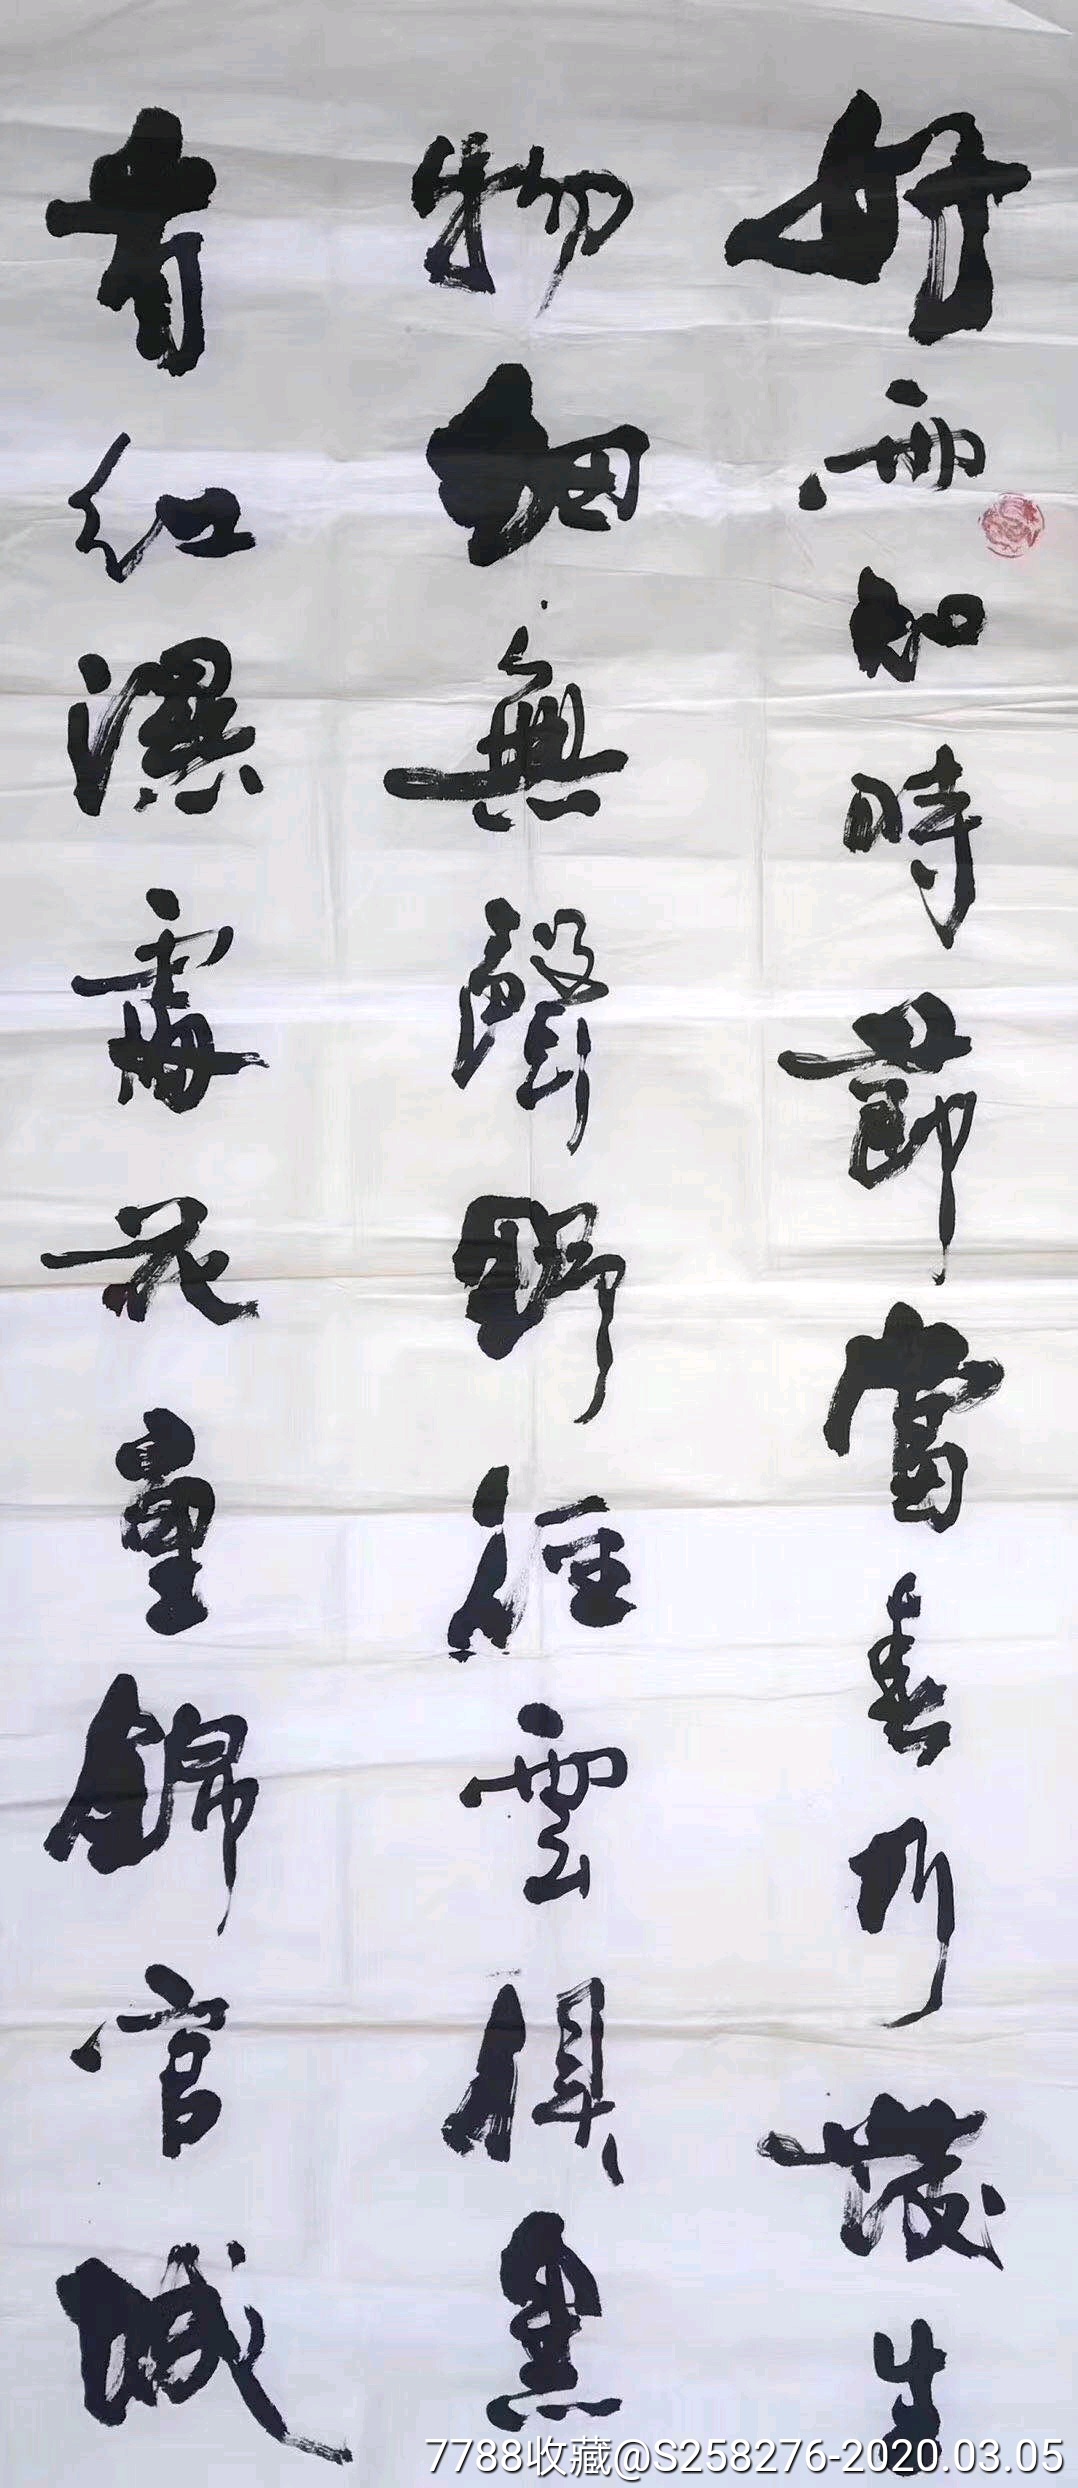 好雨知時節當春乃發生
物細無聲野徑雲俱黑
看紅濕處花重錦官城
7788收藏@S258276-2020.03.05